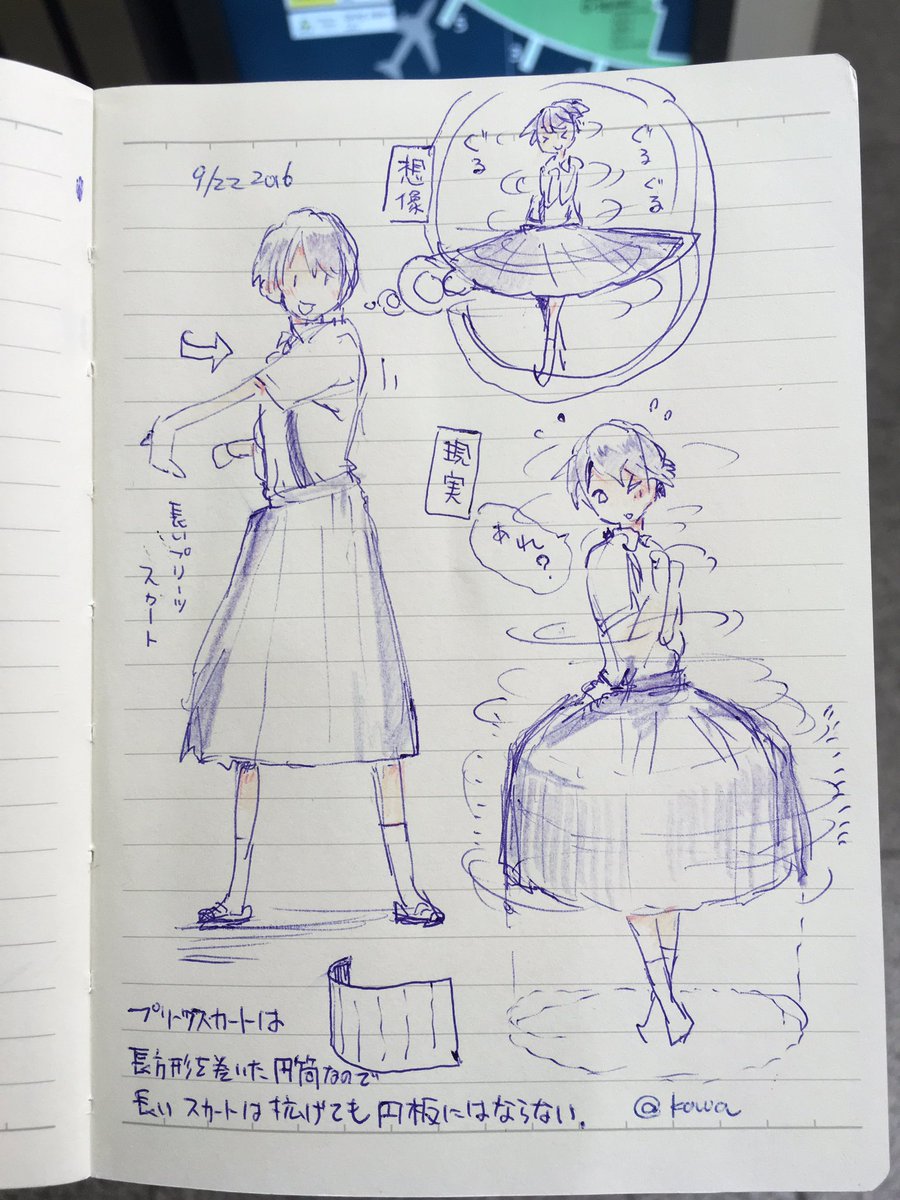 9/22 2016
想像
ぐる
ぐる
ぐる
現実
あれ?
長いプリーツ
スカート
プリーツスカートは
長方形を巻いた円筒なので
長いスカートは拡げても円板にはならない.
@kowa